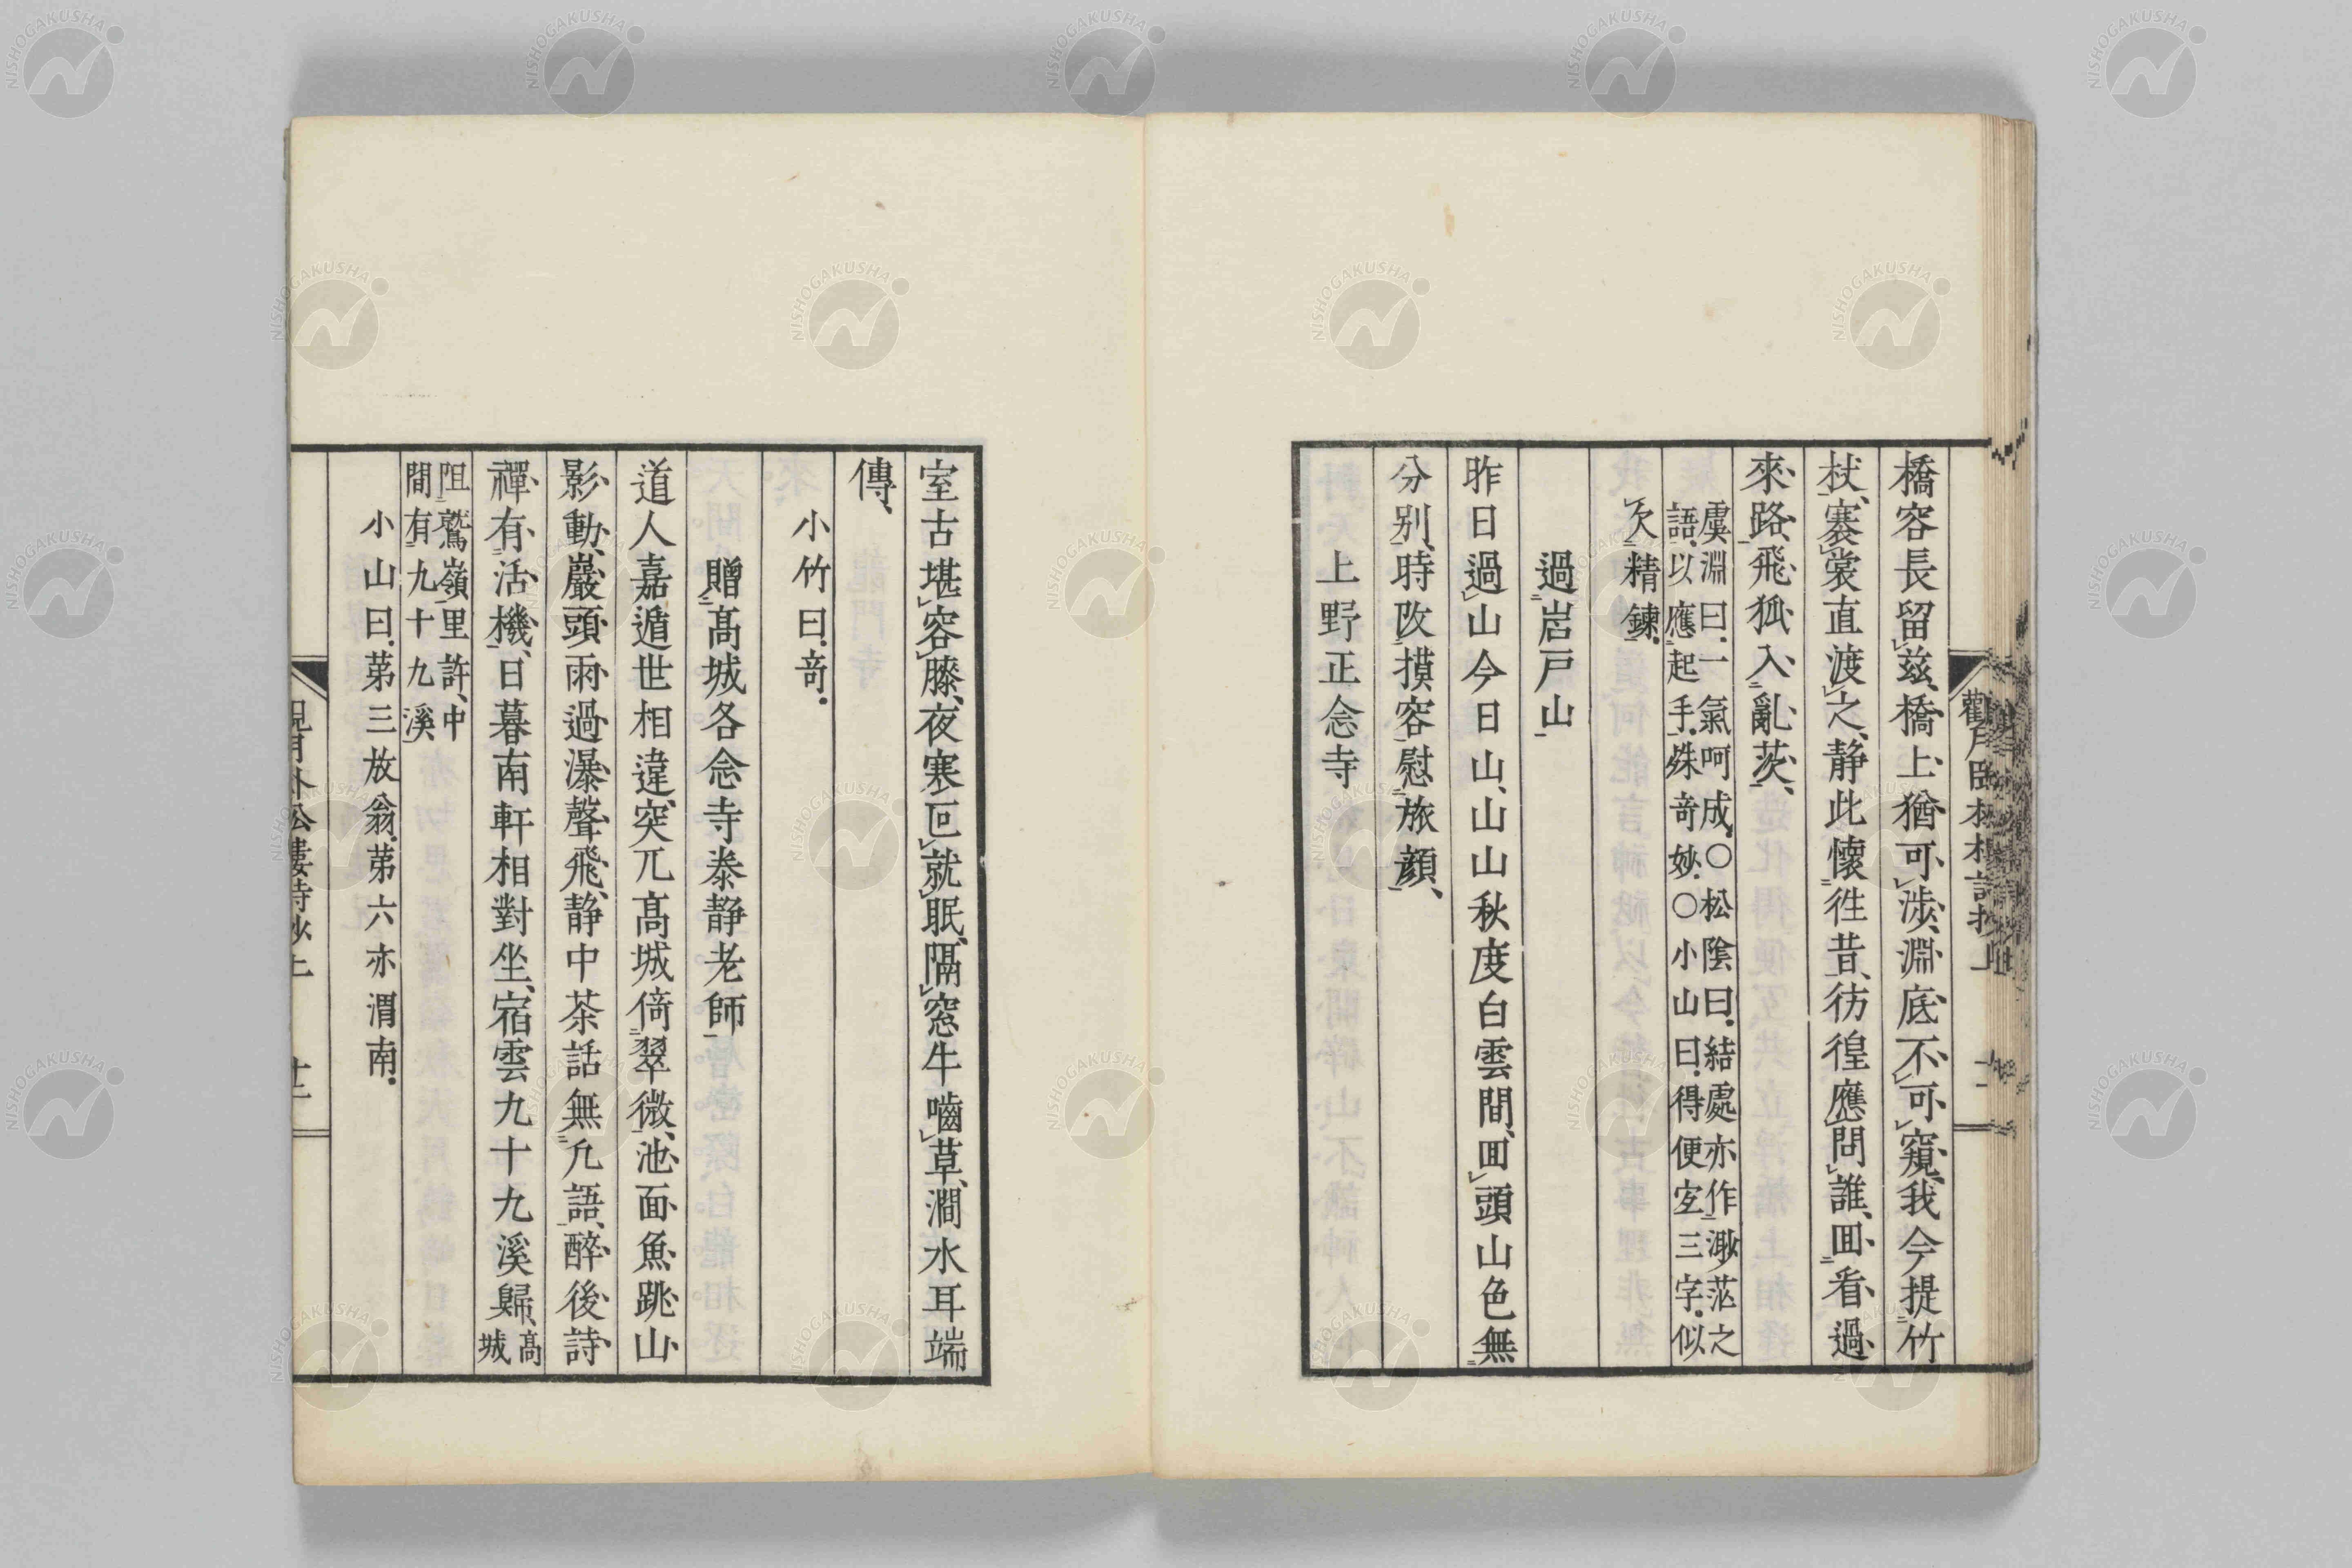 橋容長留茲橋上猶可涉淵底不可窺我今提竹
杖褰裳直渡之靜此懷徃昔彷徨應問誰回看過
來路飛狐入亂茨
虞淵曰一氣呵成○松陰曰結處亦作渺茫之
語以應起手殊奇妙○小山曰得便宜三字似
欠精鍊
過岩戸山
昨日過山今日山山山秋度白雲間回頭山色無
分別時改摸容慰旅顔
上野正念寺
室古堪容膝夜寒叵就眠隔窓牛嚙草澗水耳端
傳
小竹曰奇
贈髙城各念寺泰靜老師
道人嘉遁世相違突兀髙城倚翠微池面魚跳山
影動巖頭雨過瀑聲飛靜中茶話無凡語醉後詩
禪有活機日暮南軒相對坐宿雲九十九溪歸髙
城
阻鷲嶺里許中
間有九十九溪
小山曰第三放翁第六亦渭南
NISHOGAKUSHA